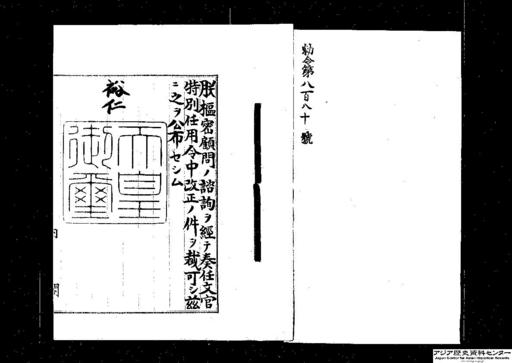 勅令第八百八十號
朕樞密顧問ノ諮詢ヲ經テ奏任文官
特別任用令中改正ノ件ヲ裁可シ茲
ニ之ヲ公布セシム
裕仁
天皇
御璽
アジア歴史資料センター
Japan Center for Asian Historical Records